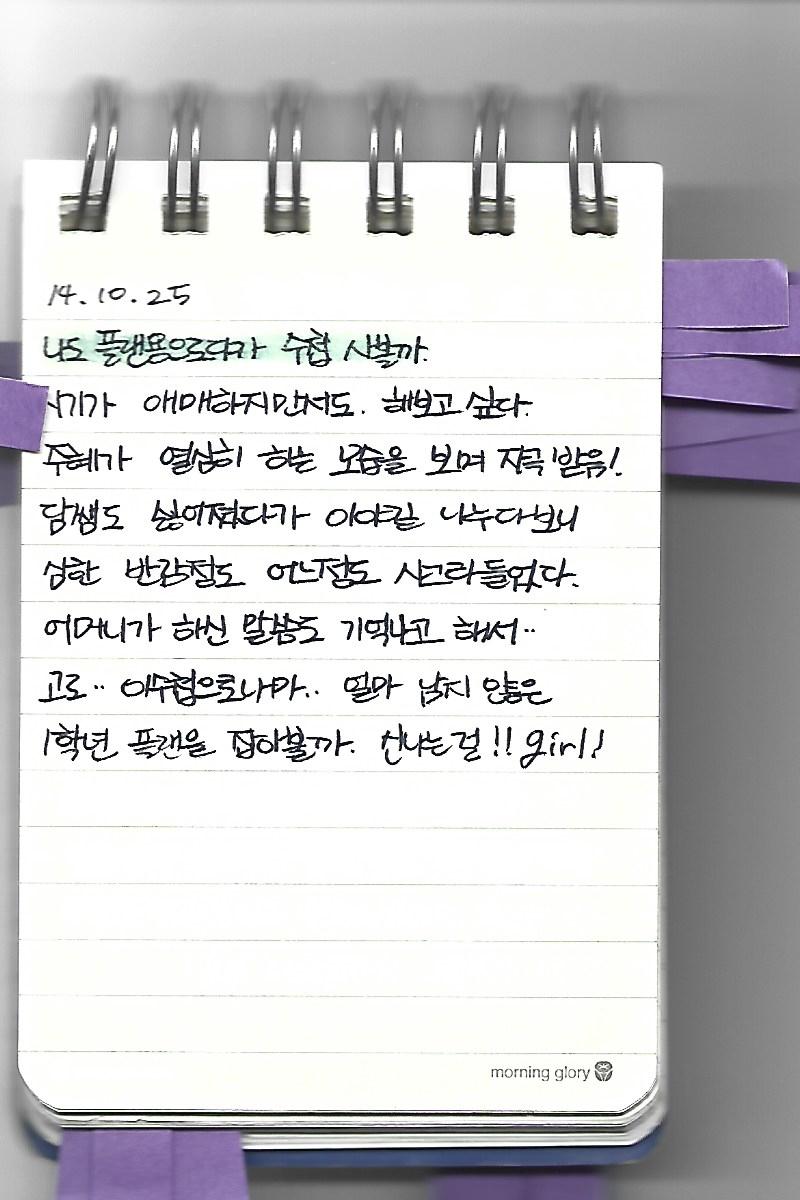 14.10.25
나도 플랜용으로다가 수첩 사볼까.
시기가 애매하지만서도. 해보고 싶다.
주혜가 열심히 하는 모습을 보며 자극받음!
담쌤도 싫어졌다가 이야길 나누다보니
상한 반감정도 어느정도 사그라들었다.
어머니가 하신 말씀도 기억나고 해서..
고로.. 이수첩으로나마.. 얼마 남지 않은
1학년 플랜을 잡아볼까. 신나는걸!! girl!
morning glory